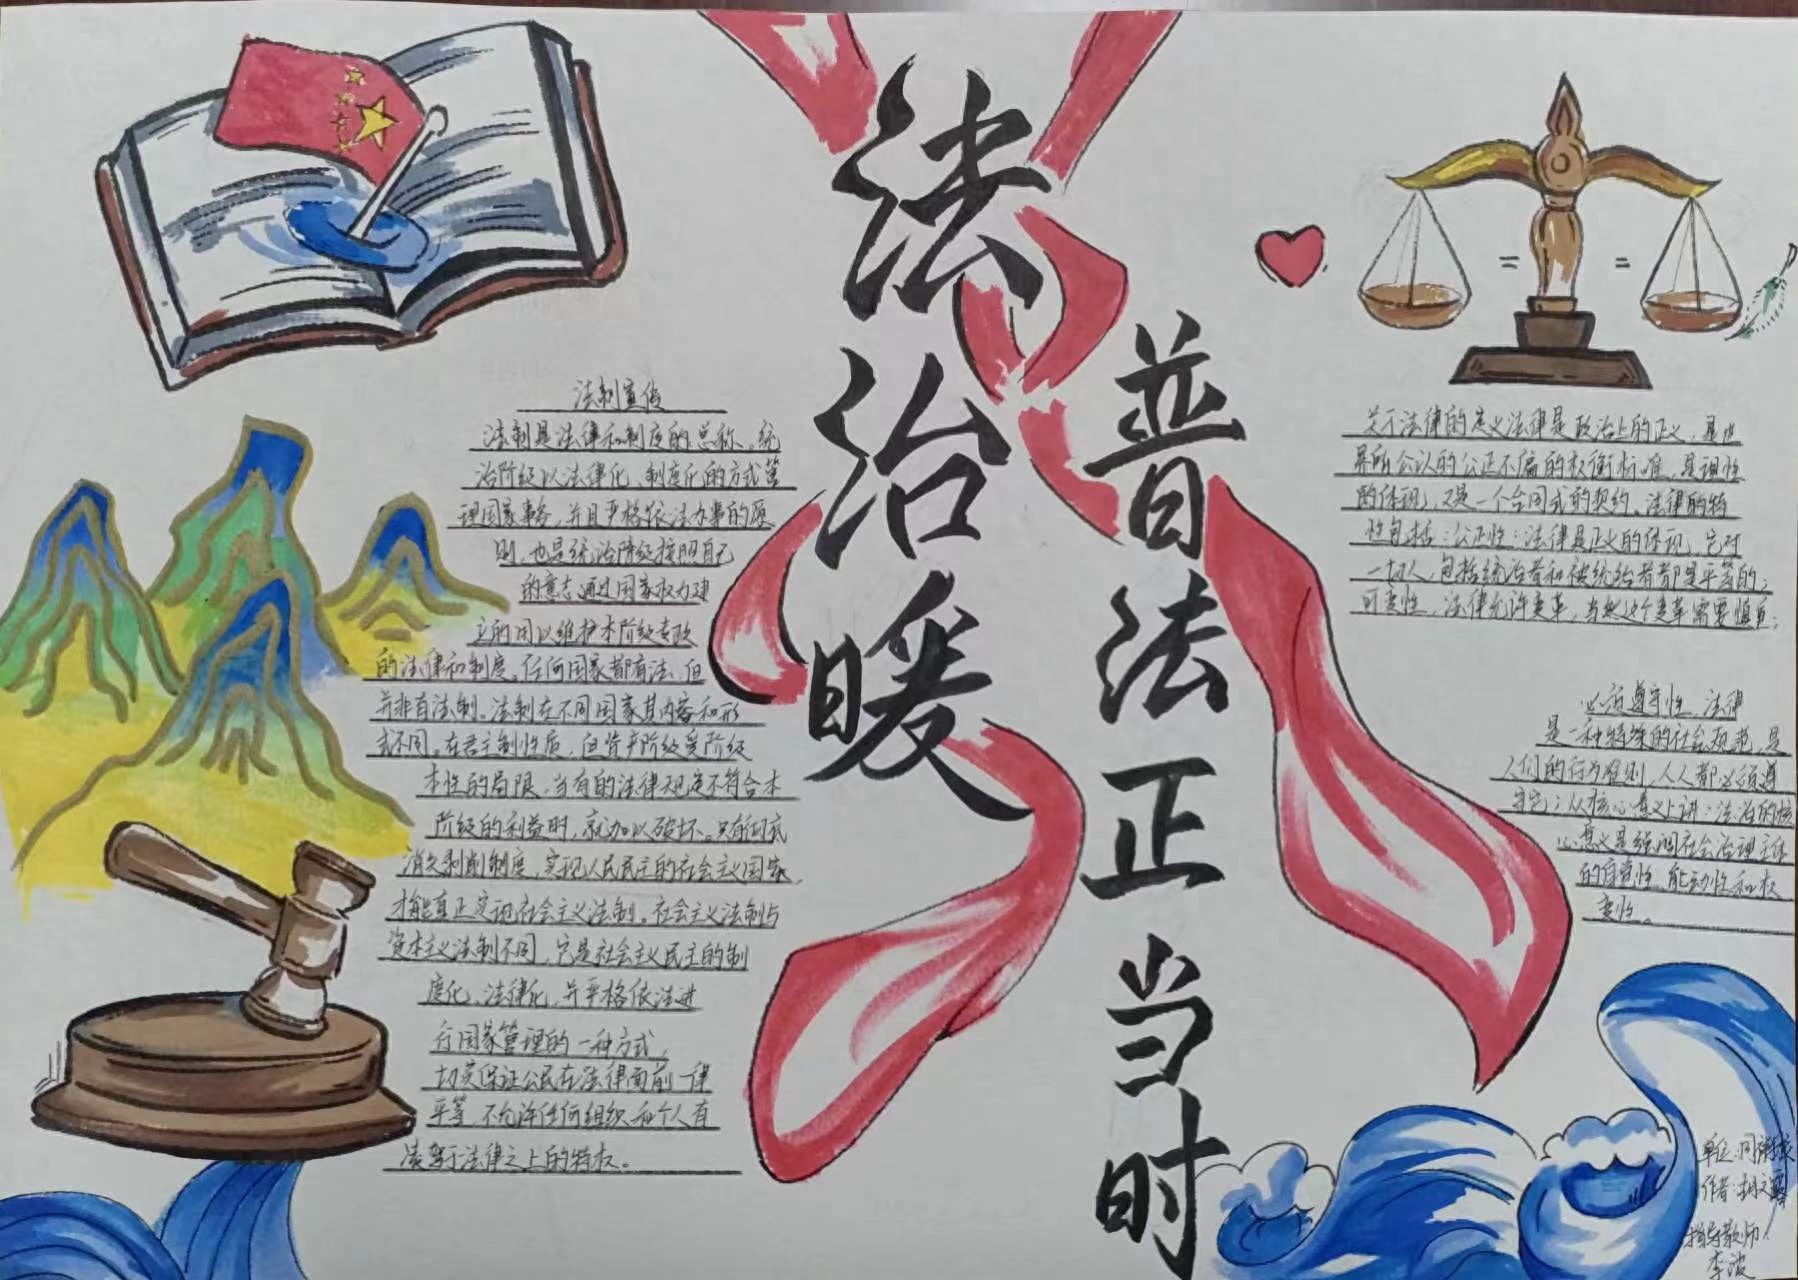 法治暖
普法正当时
法制宣传
法制是法律和制度的总称。统
治阶级以法律化、制度化的方式管
理国家事务,并且严格依法办事的原
则,也是统治阶级按照自己
的意志通过国家权力建
立的用以维护本阶级专政
的法律和制度。任何国家都有法,但
并非有法制。法制在不同国家其内容和形
式不同。在君主制性质,但资产阶级受阶级
本性的局限,当有的法律规定不符合本
阶级的利益时,就加以破坏。只有彻底
消灭剥削制度,实现人民民主的社会主义国家,
才能真正实现社会主义法制。社会主义法制与
资本主义法制不同,它是社会主义民主的制
度化、法律化,并严格依法进
行国家管理的一种方式,
切实保证公民在法律面前一律
平等,不允许任何组织和个人有
凌驾于法律之上的特权。
关于法律的定义法律是政治上的正义,是世
界所公认的公正不偏的权衡标准,是理性
的体现,又是一个合同式的契约。法律的特
性包括:公正性:法律是正义的体现,它对
一切人,包括统治者和被统治者都是平等的;
可变性,法律允许变革,当然这个变革需要慎重;
必须遵守性,法律
是一种特殊的社会规范,是
人们的行为准则,人人都必须遵
守它;从核心意义上讲:法治的核
心意义是强调社会治理主体
的自觉性、能动性和权
变性。
单位:同
作者:胡文
指导教师:
李波